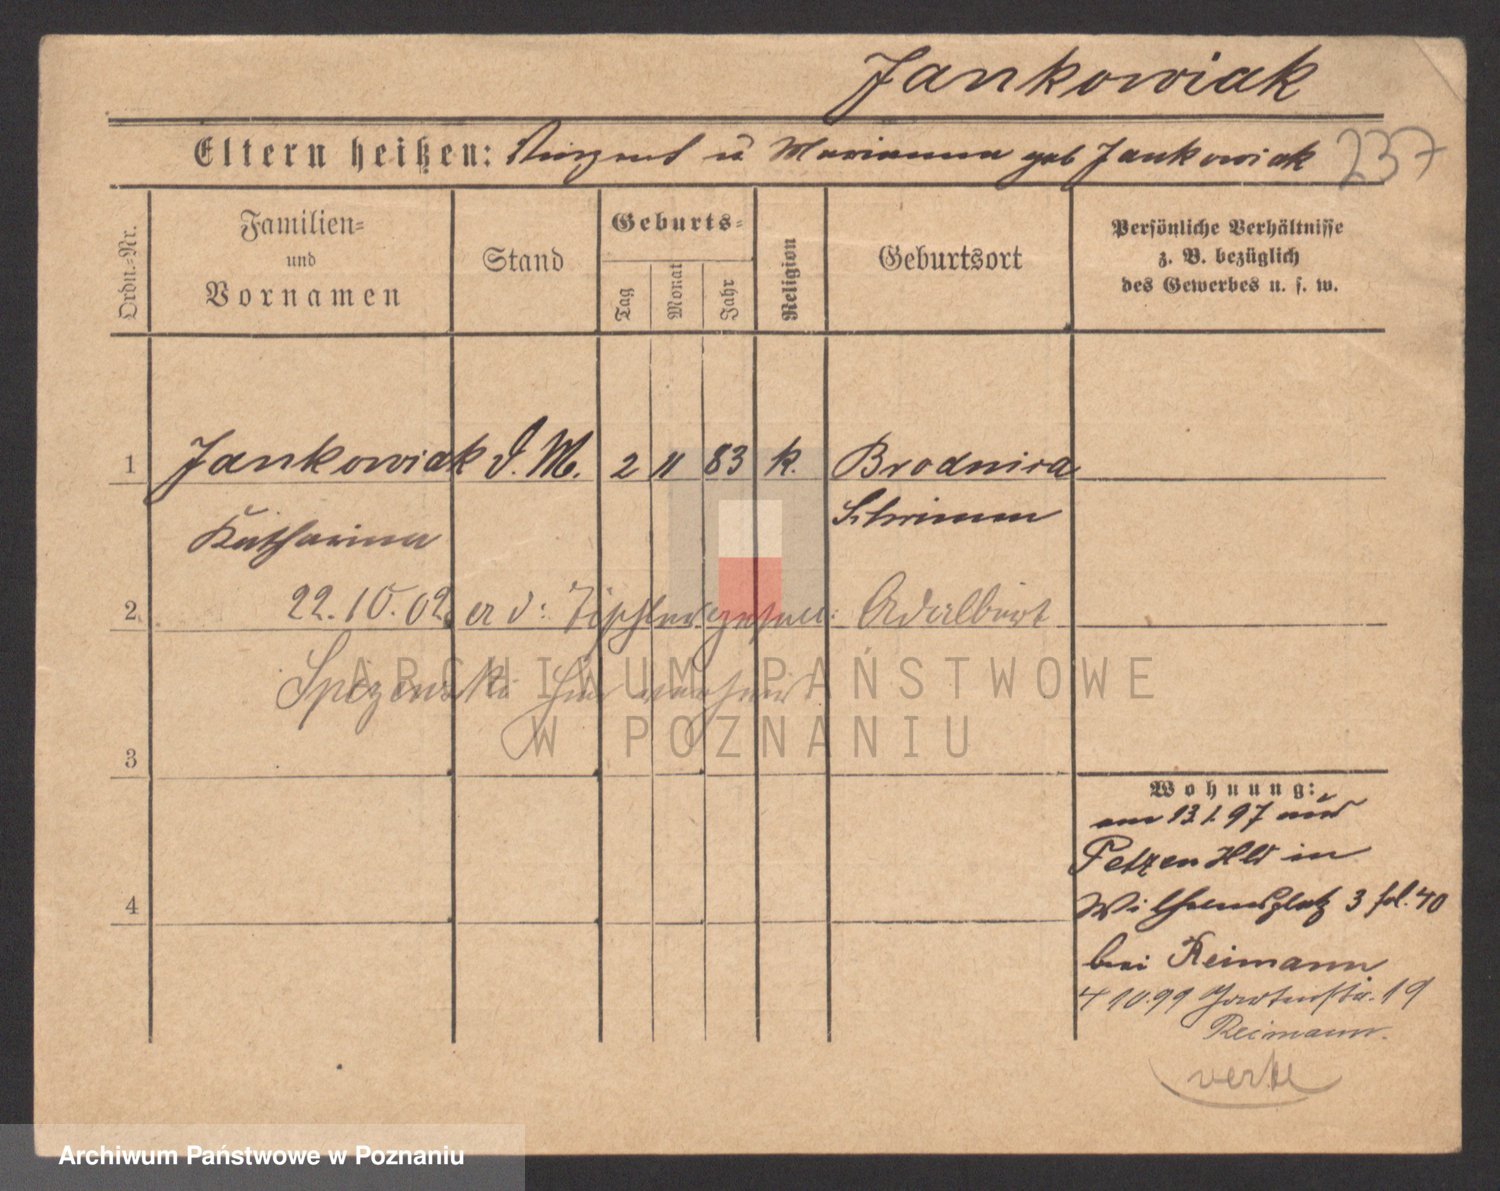 Jankowiak
Eltern heißen: Vinzent u Marianna geb Jankowiak 237
Ordn.-Nr.
Familien-
und
Vornamen
Stand
Geburts-
Tag
Monat
Jahr
Religion
Geburtsort
Persönliche Verhältnisse
z. B. bezüglich
des Gewerbes u. s. w.
1 Jankowiak D. M. 2 11 83 k. Brodnica
Katharina Schrimm
2 22.10.02. an d: Tischlergesell: Adalbert
Spczewski hier verheir
3
4
Wohnung:
am 13.1.97 aus
Petzen Hld in
Wilhelmsplatz 3 fol. 40
bei Reimann
4 10 99 Gartenstr. 19
Reimann.
verte
ARCHIWUM PAŃSTWOWE
W POZNANIU
Archiwum Państwowe w Poznaniu